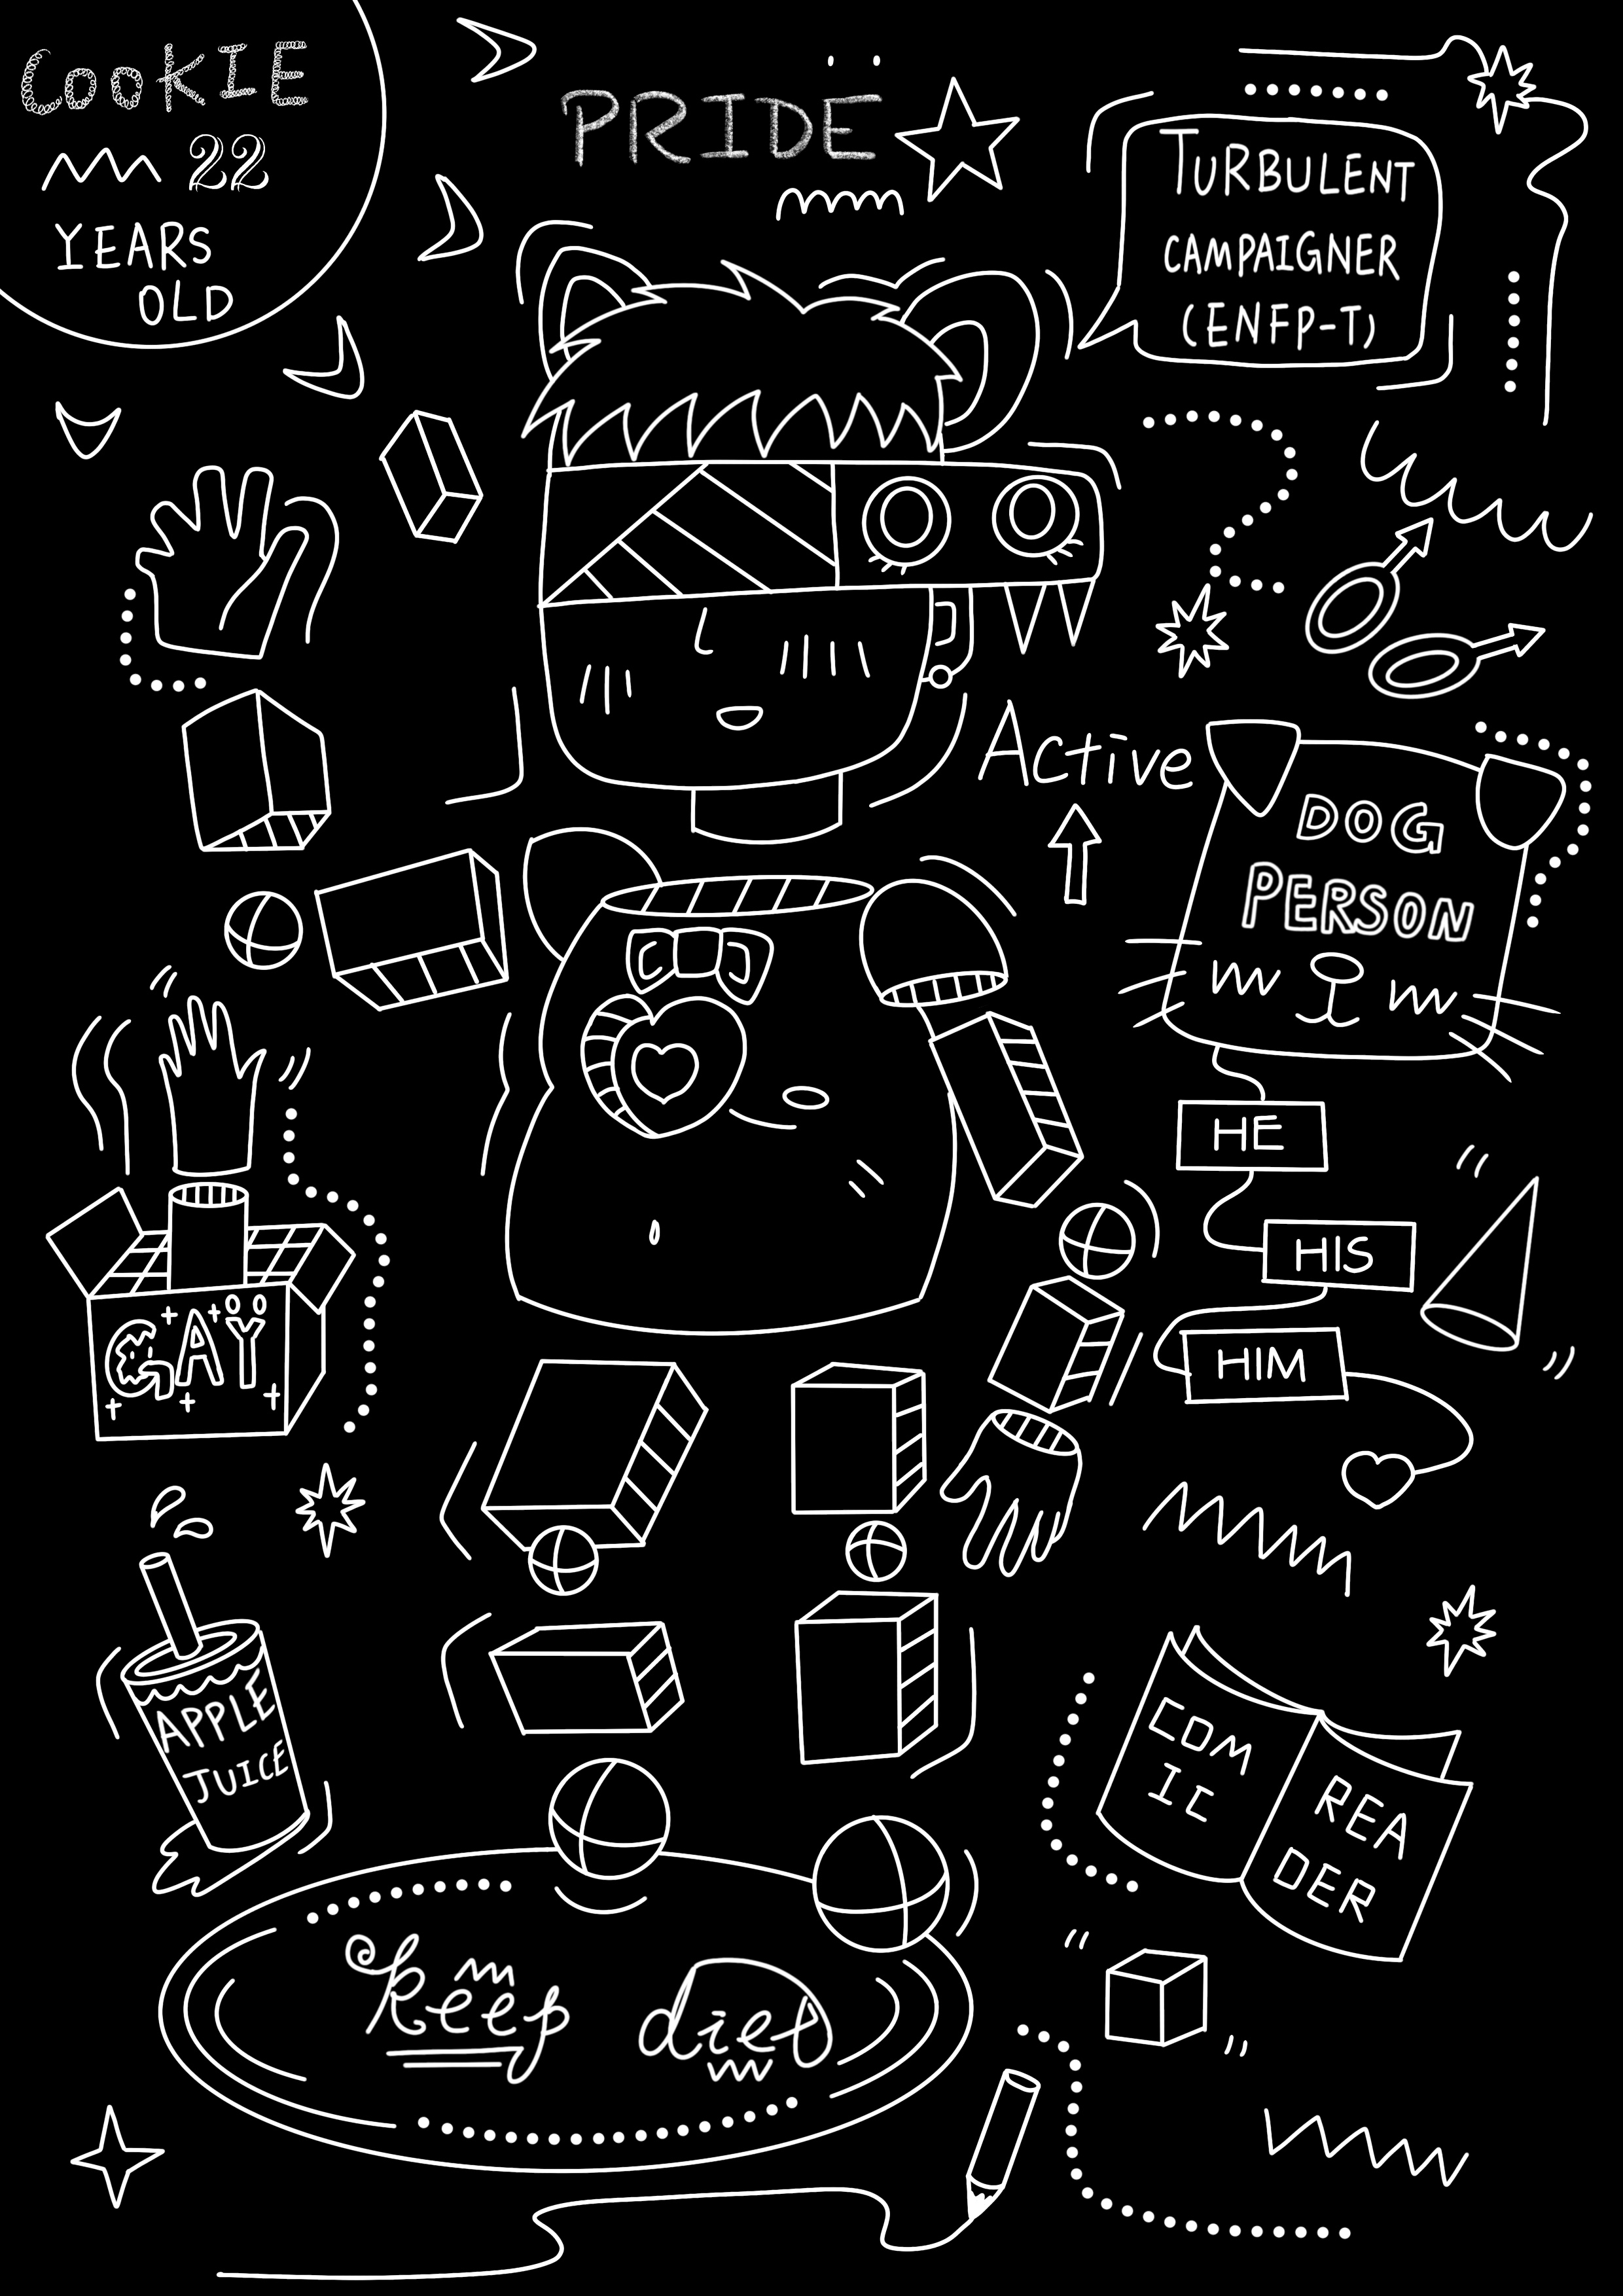 COOKIE
22
YEARS
OLD
PRIDE
TURBULENT
CAMPAIGNER
(ENFP-T)
Active
DOG
PERSON
HE
HIS
HIM
GAY
APPLE
JUICE
COM
IC
REA
DER
keep diet